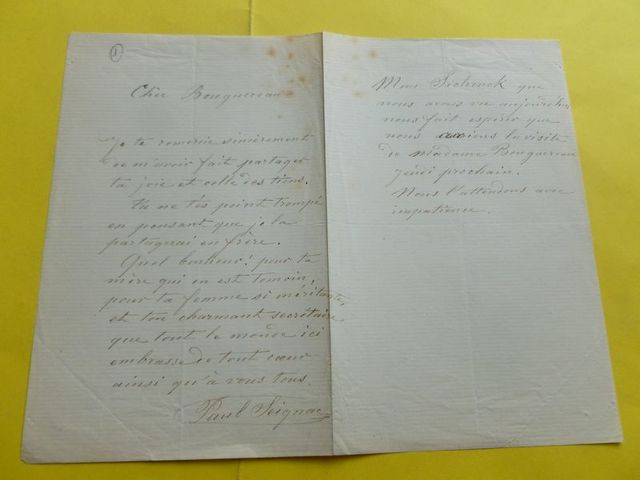 1
Cher Bouguereau
Je te remercie sincèrement
de m'avoir fait partager
ta joie et celle des tiens.
Tu ne t'es point trompé
en pensant que je la
partagerai en frère.
Quel bonheur! pour ta
mère qui en est temoin,
pour ta femme si méritante,
et ton charmant secrétaire
que tout le monde ici
embrasse de tout cœur
ainsi qu'à vous tous.
Paul Seignac
Mous Schenck que
nous avons vu aujourd'hui
nous fait espérer que
nous aurions la visite
de Madame Bouguereau
jeudi prochain.
Nous l'attendons avec
impatience.